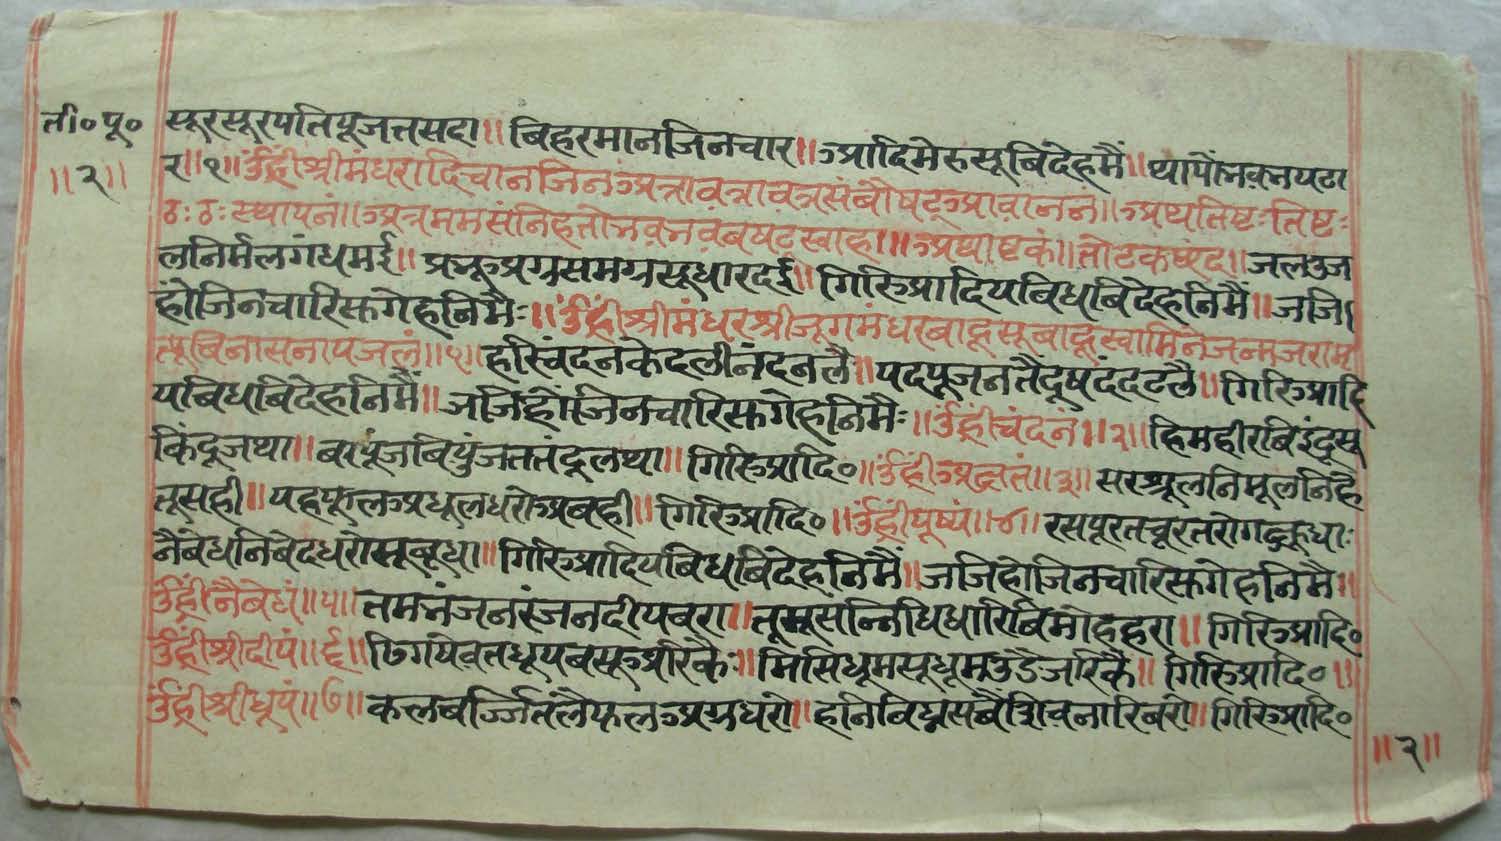 ती० पू०
॥२॥
सूरसूरपतिपूजतसदा॥ बिहरमानजिनचार॥ आदिमेरुसूबिदेहमैं॥ थापौंभवतपठा
र॥१॥ उंह्रीं श्रीमंधरादिचानजिनअत्रावत्रावत्रसंबौषट्आवाननं॥ अथतिष्टःतिष्टः
ठःठःस्थापनं॥ अत्रममसंनिहतोभवभवबषट्स्वाहा॥ अथाष्टकं॥ तोटकछंद॥ जलउज
लनिर्मलगंधमई॥ प्रभूअग्रसमग्रसूधारदई॥ गिरिआदियबिधबिदेहनिमैं॥ जजि
हौंजिनचारिसगेहनिमैः॥ उंह्रीं श्रीमंधरश्रीजूगमंधरबाहूसूबाहूस्वामिनेजन्मजराम्र
त्यूबिनासनायजलं॥१॥ हरिचंदनकेदलीनंदनलै॥ पदपूजनतैदूषदंददलै॥ गिरिआदि
यबिधबिदेहनिमैं॥ जजिहौंजिनचारिसगेहनिमैः॥ उंह्रींचंदनं॥२॥ हिमहीरबिइंदूसू
किंदूजथा॥ बरपूंजबिपुंजततंदूलथा॥ गिरिआदि० ॥ उंह्रींअक्षतं॥३॥ सरश्रूलनिमूलनिहै
तूसही॥ पदफूलअधूलधरोअबही॥ गिरिआदि० ॥ उंह्रींपूष्पं॥४॥ रसपूरतचूरतरोगक्षुधाः
नैबेधनिबेदधरोसूबूधा॥ गिरिआदियबिधबिदेहनिमैं॥ जजिहौजिनचारिसगेहनिमै॥
उंह्रींनैबेद्यं॥५॥ तमभंजनरंजनदीपबरा॥ तूमूसन्निधिधारिबिमोहहरा॥ गिरिआदि०
उंह्रींश्रीदीपं॥६॥ ढिगयेवतधूपबसूअरिकैः॥ मिसिधूमसूधूमउडैजरिकै॥ गिरिआदि०॥
उंह्रींश्रीधूपं॥७॥ कलबर्ज्जितलैफलअग्रधरो॥ हनिबिघ्नसबैंशिवनारिबरो॥ गिरिआदि०
॥२॥